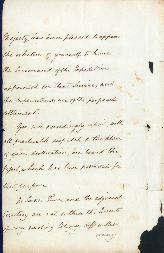 Majesty has been pleased to approve
the selection of yourself to have
the command of the Expedition
appointed on that Service, and
the Superintendence of the proposed
settlement.
You will accordingly repair with
all practicable
of your destination, on board the
which has been provided for
that purpose.
As Swan River and the adjacent
territory are not within the limits
of any existing Colony, difficulties